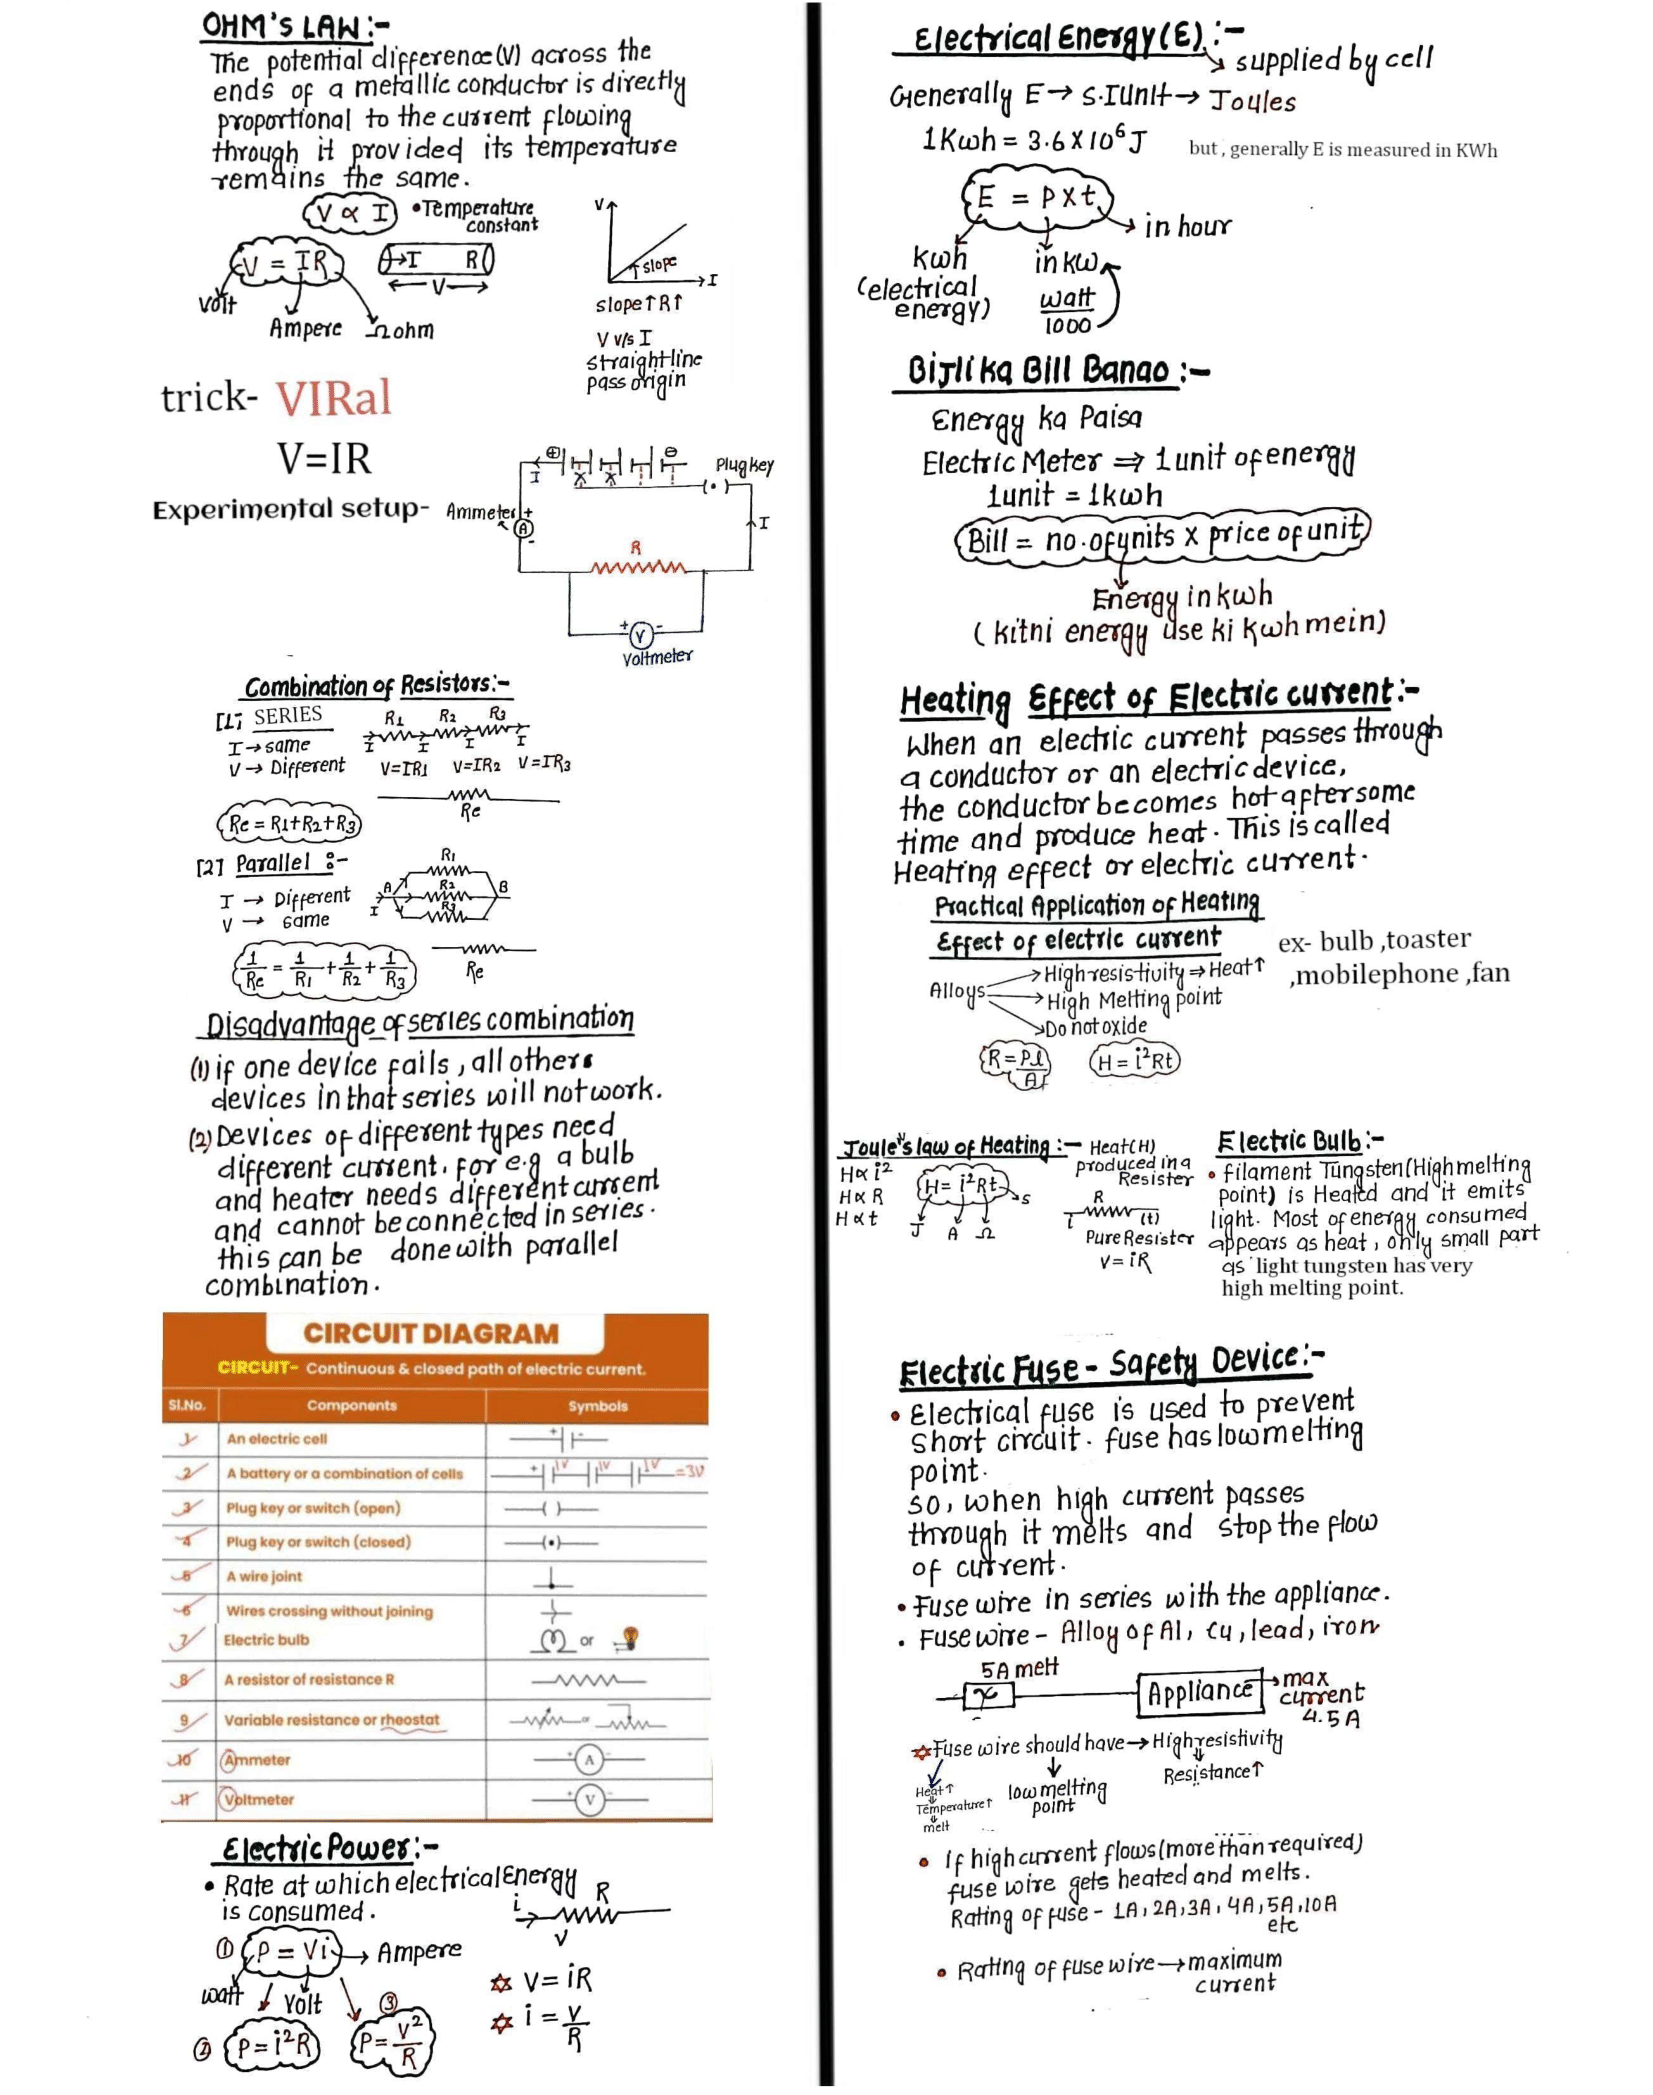 OHM's LAW :-
The potential difference(V) across the
ends of a metallic conductor is directly
proportional to the current flowing
through it provided its temperature
remains the same.
V ∝ I •Temperature
constant
V = IR
→I R
←V→
Volt
Ampere Ω ohm
V
slope
I
slope↑R↑
V v/s I
straight line
pass origin
trick- VIRal
V=IR
Experimental setup-
Plug key
I
Ammeter +
A
-
I
R
+ V -
Voltmeter
Combination of Resistors:-
[1] SERIES
I→same
V→ Different
R1 R2 R3
I I I I
V=IR1 V=IR2 V=IR3
Re
Re = R1+R2+R3
[2] Parallel :-
I → Different
V → same
R1
A R2 B
I R3
1/Re = 1/R1 + 1/R2 + 1/R3
Re
Disadvantage of series combination
(1) if one device fails, all others
devices in that series will not work.
(2) Devices of different types need
different current. for e.g a bulb
and heater needs different current
and cannot be connected in series.
this can be done with parallel
combination.
CIRCUIT DIAGRAM
CIRCUIT- Continuous & closed path of electric current.
Sl.No. Components Symbols
1 An electric cell + -
2 A battery or a combination of cells + 1V 1V 1V =3V
3 Plug key or switch (open) ( )
4 Plug key or switch (closed) (•)
5 A wire joint
6 Wires crossing without joining
7 Electric bulb or
8 A resistor of resistance R
9 Variable resistance or rheostat or
10 Ammeter + A -
11 Voltmeter + V -
Electric Power:-
• Rate at which electrical Energy
is consumed.
i R
V
① P = Vi → Ampere
watt Volt
② P= i²R
③ P= V²/R
V= iR
i = V/R
Electrical Energy(E) :-
supplied by cell
Generally E→ S.I Unit→ Joules
1Kwh = 3.6 X 10⁶ J but , generally E is measured in KWh
E = P x t
in hour
kwh
(electrical
energy)
in kw
watt/1000
Bijli ka Bill Banao :-
Energy ka Paisa
Electric Meter ⇒ 1 unit of energy
1unit = 1kwh
Bill = no.of units x price of unit
Energy in kwh
( kitni energy use ki kwh mein)
Heating Effect of Electric current:-
When an electric current passes through
a conductor or an electric device,
the conductor becomes hot after some
time and produce heat. This is called
Heating effect or electric current.
Practical Application of Heating
Effect of electric current
ex- bulb ,toaster
,mobilephone ,fan
Alloys
→High resistivity ⇒ Heat↑
→High Melting point
→Do not oxide
R = ρl/A
H = i²Rt
Joule's law of Heating :-
H∝ i²
H∝ R
H∝t
H= i²Rt
J A Ω s
Heat(H)
produced in a
Resister
R
i (t)
Pure Resister
V= iR
Electric Bulb:-
• filament Tungsten(High melting
point) is Heated and it emits
light. Most of energy consumed
appears as heat, only small part
as light tungsten has very
high melting point.
Electric Fuse - Safety Device:-
• Electrical fuse is used to prevent
short circuit. fuse has low melting
point.
so, when high current passes
through it melts and stop the flow
of current.
• Fuse wire in series with the appliance.
• Fuse wire - Alloy of Al, Cu, lead, iron
5A melt
Appliance
→max
current
4.5A
Fuse wire should have→ High resistivity
Resistance↑
low melting
point
Heat↑
Temperature↑
melt
• If high current flows(more than required)
fuse wire gets heated and melts.
Rating of fuse - 1A, 2A, 3A, 4A, 5A, 10A
etc
• Rating of fuse wire→maximum
current